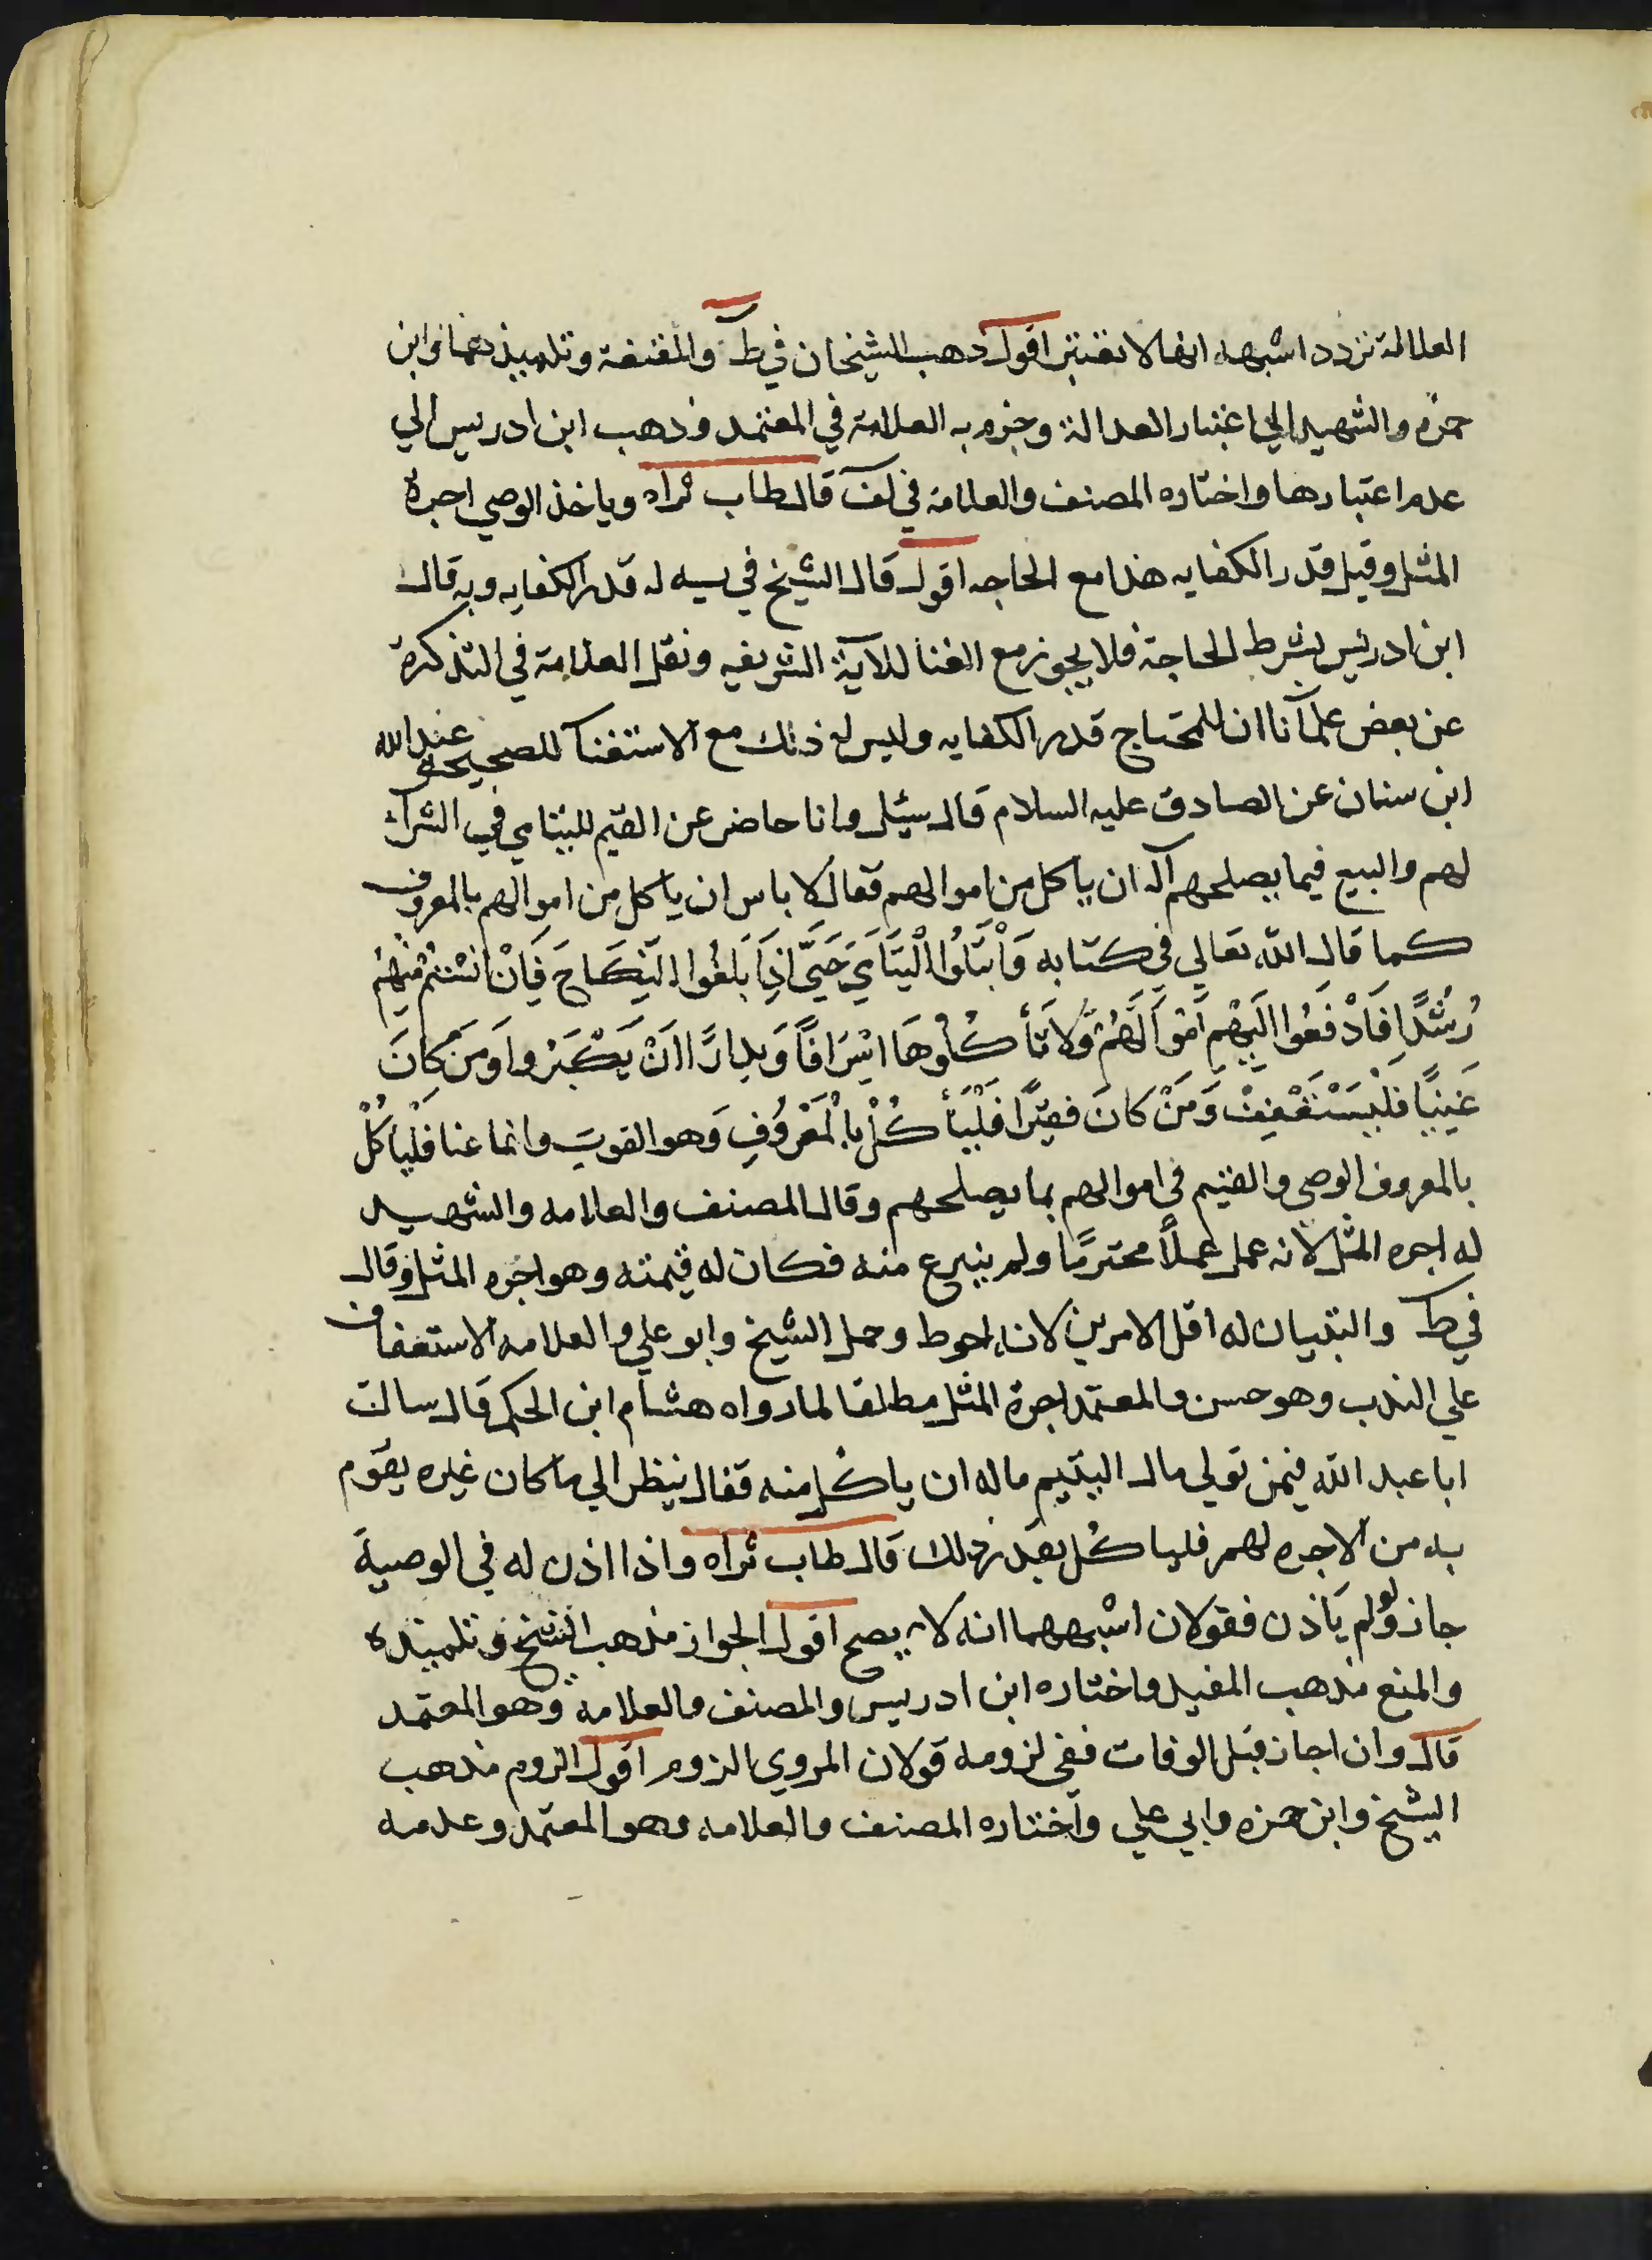 العدالة تردد اشبهه انها لا تعتبر اقول ذهب الشيخان في ط والمقنعة وتلميذ هما وابن
حمزه والشهيد الي اعتبار العدالة وجزم به العلامة في المعتمد وذهب ابن ادريس الي
عدم اعتبارها واختاره المصنف والعلامة في لف قال طاب ثراه وياخذ الوصي اجرة
المثل وقيل قدر الكفايه هذا مع الحاجه اقول قال الشيخ في يه له قدر الكفايه وبه قال
ابن ادريس بشرط الحاجة فلا يجوز مع الغنا للاية الشريفه ونقل العلامة في التذكرة
عن بعض علمآنا ان للمحتاج قدر الكفايه وليس له ذلك مع الاستغنا للصحيحه عبد الله
ابن سنان عن الصادق عليه السلام قال سئل وانا حاضر عن القيم لليتامي في الشرآء
لهم والبيع فيما يصلحهم آله ان ياكل من اموالهم فقال لا باس ان ياكل من اموالهم بالمعروف
كما قال الله تعالي في كتابه وَاْبتَلُوا الْيَتَامَي حَتَّي اِذَا بَلَغُوا النِّكَاحَ فَاِنْ انَسْتُمْ مِنْهُمْ
رُشْدًا فَادْفَعُوا اِلَيْهِمِ اَمْوَالَهُمْ وَلَا تَأكُلُوهَا اِسْرَافًا وَبِدارًا اَنْ يَكْبَرُوا وَمَنْ كَانَ
غَنِيًّا فَلْيَسْتَعْفِفْ وَمَنْ كَانَ فَقِيرًا فَلْيَأكُلْ بِالْمَعْرُوفِ وَهو القوت وانما عنا فَلْيَاكُلْ
بالمعروف الوصي والقيم في اموالهم بما يصلحهم وقال المصنف والعلامه والشهيد
له اجره المثل لانه عمل عملاً محترمًا ولم يتبرع منه فكان له قيمته وهو اجره المثل وقال
في ط والتبيان له اقل الامرين لانه احوط وحمل الشيخ وابو علي والعلامه الاستعفاف
علي الندب وهو حسن والمعتمد اجرة المثل مطلقا لما رواه هشام ابن الحكم قال سالت
ابا عبد الله فيمن تولي مال اليتيم ما له ان ياكل منه فقال ينظر الي ما كان غيره يقوم
به من الاجره لهم فلياكل بقدر ذلك قال طاب ثراه واذا اذن له في الوصية
جاز ولو لم يَاذن فقولان اشبههما انه لا يصح اقول الجواز مذهب الشيخ وتلميذه
والمنع مذهب المفيد واختاره ابن ادريس والمصنف والعلامه وهو المعتمد
قال وان اجاز قبل الوفات ففي لزومه قولان المروي الزوم اقول الزوم مذهب
الشيخ وابن حمزه وابي علي واختاره المصنف والعلامه وهو المعتمد وعدمه